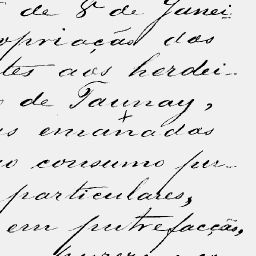 de 8 de Janei
opriação dos
tes aos herdei-
de Taunay,
s emanados
o consumo pu-
particulares,
em putrefacção,